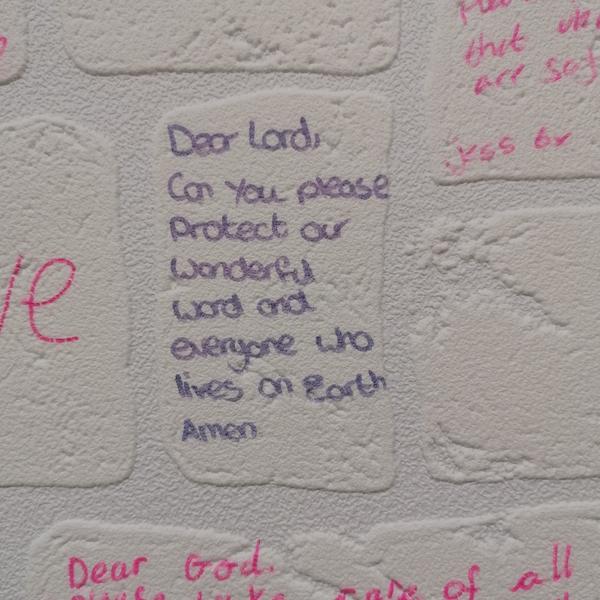 that
are saf
jess 6x
Dear Lord,
Can You please
Protect our
Wonderful
word and
everyone who
lives on Earth
Amen
ve
Dear God.
care of all